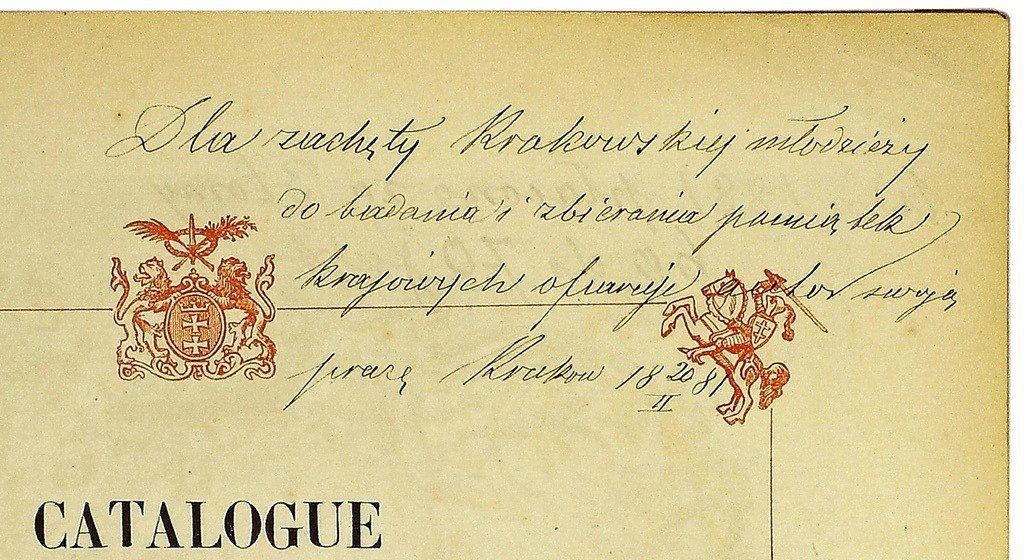 Dla zachęty Krakowskiej młodzieży
do badania i zbierania pamiątek
krajowych ofiaruje autor swoją
pracę Kraków 18 20/II 81
CATALOGUE